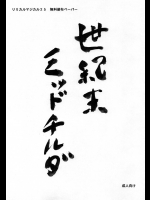 リリカルマジカル26 無料配布ペーパー
世紀末
ミッドチルダ
成人向け